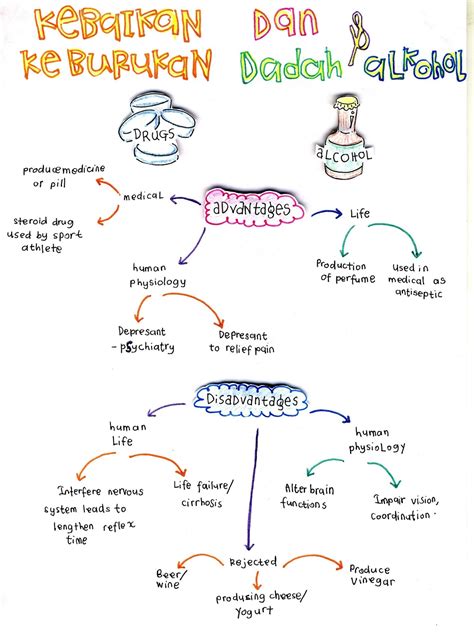 KEBAIKAN DAN
KEBURUKAN DADAH & ALKOHOL
DRUGS
ALCOHOL
produce medicine
or pill
medical
steroid drug
used by sport
athlete
advantages
Life
human
physiology
Production
of perfume
Used in
medical as
antiseptic
Depresant
-psychiatry
Depresant
to relief pain
Disadvantages
human
Life
human
physiology
Interfere nervous
system leads to
lengthen reflex
time
Life failure/
cirrhosis
Alter brain
functions
Impair vision,
coordination.
Rejected
Beer/
wine
produsing cheese/
yogurt
Produce
Vinegar